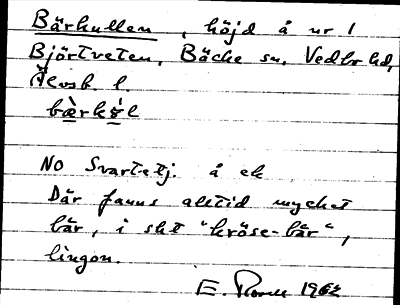 Bärkullen, höjd å nr 1
Björtveten, Bäcke sn, Vedbo hd,
Älvsb. l.
bæ̀rkɷ̀l
NO Svartetj. å ek
Där fanns alltid mycket
bär, i sht "kröse-bär",
lingon.
E. 1962